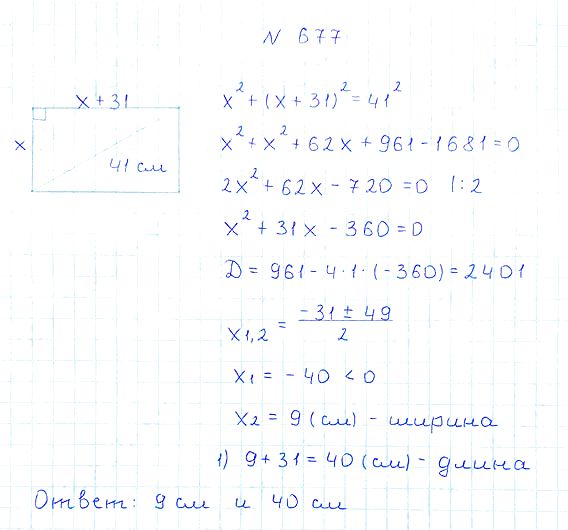 N 677
x + 31
x
41 см
x² + (x + 31)² = 41²
x² + x² + 62x + 961 - 1681 = 0
2x² + 62x - 720 = 0 |: 2
x² + 31x - 360 = 0
D = 961 - 4 · 1 · (-360) = 2401
x1,2 = (-31 ± 49)/2
x1 = - 40 < 0
x2 = 9 (см) - ширина
1) 9 + 31 = 40 (см) - длина
Ответ: 9 см и 40 см